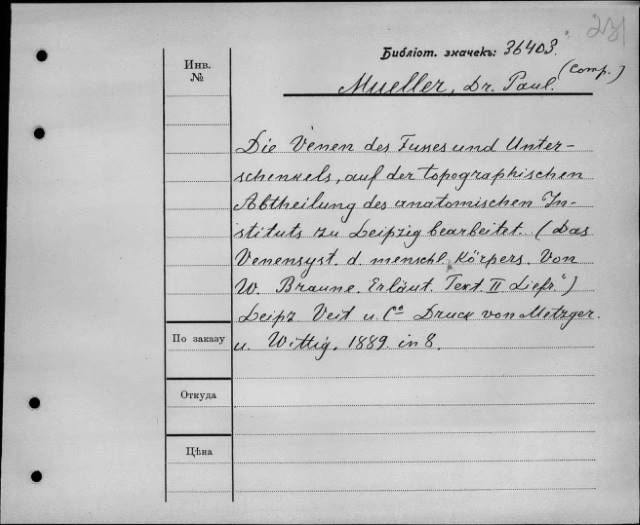 Библіот. значекъ: 36403.
Инв.
№
Mueller, Dr. Paul. (Comp.)
Die Venen des Fusses und Unter-
schenkels, auf der topographischen
Abtheilung des anatomischen In-
stituts zu Leipzig bearbeitet. (Das
Venensyst. d. menschl. Körpers. Von
W. Braune. Erläut. Text. II Liefr.)
Leipz Veit u. Co Druck von Metzger
u. Wittig. 1889. in 8.
По заказу
Откуда
Цѣна